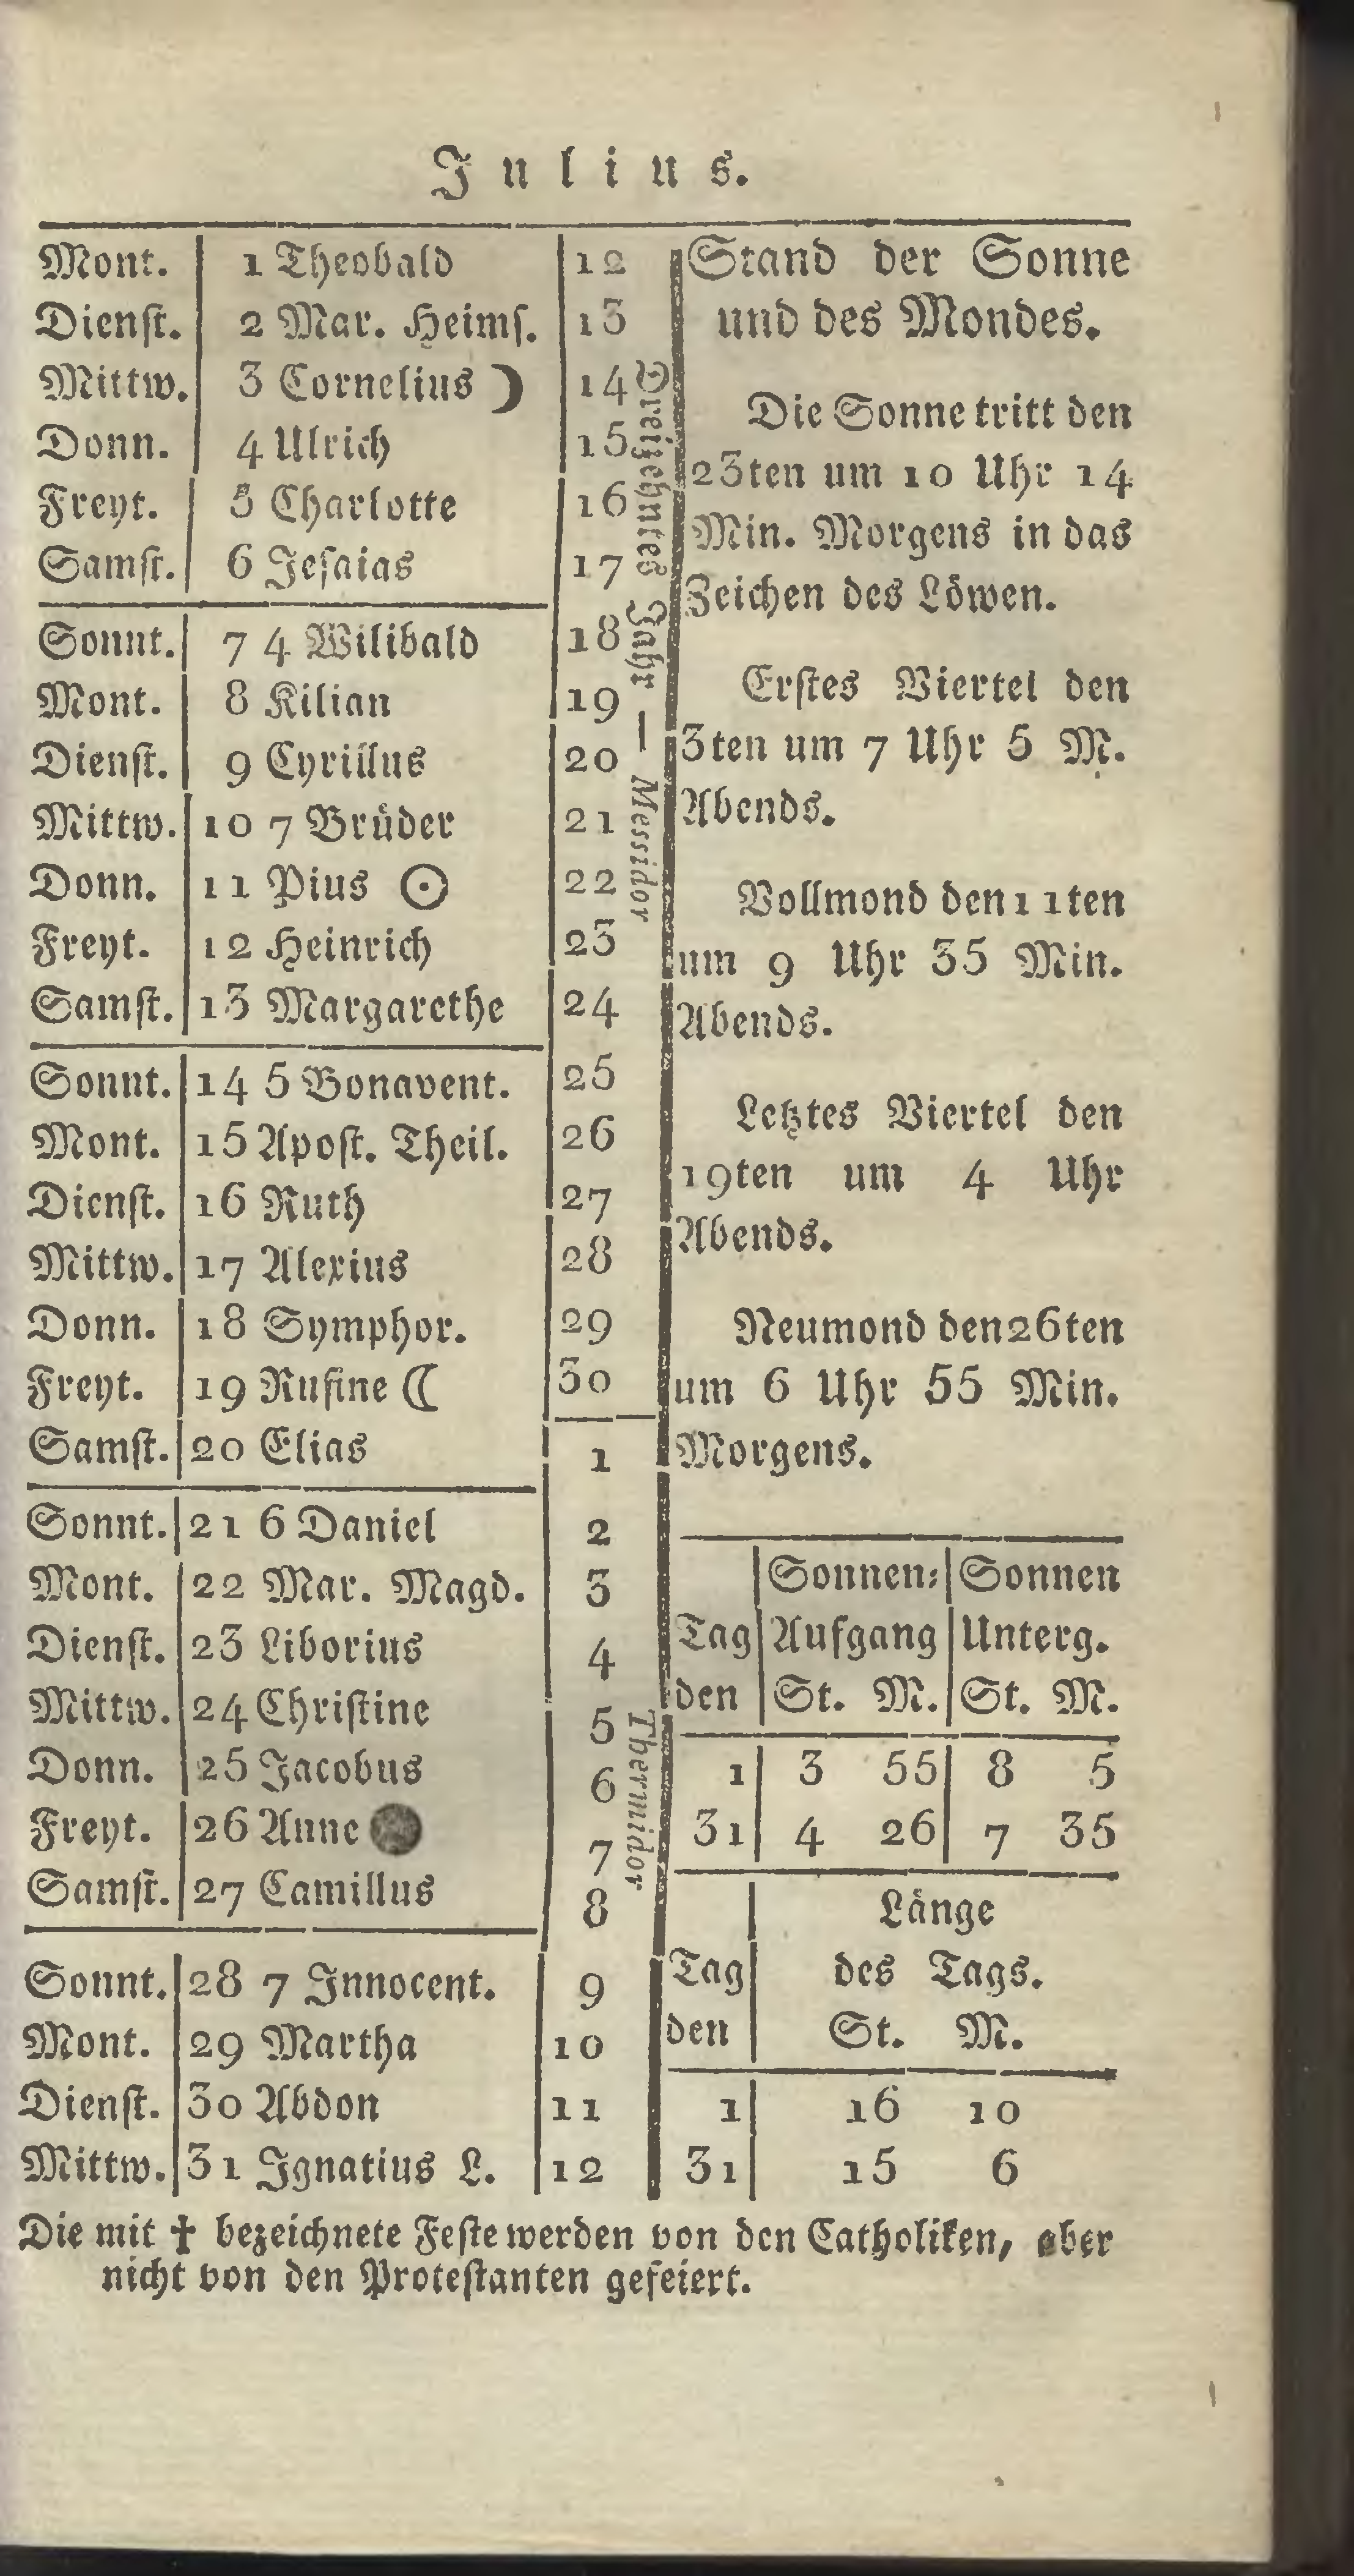 Julius.
Mont. 1 Theobald 12
Dienst. 2 Mar. Heims. 13
Mittw. 3 Cornelius ☽ 14
Donn. 4 Ulrich 15
Freyt. 5 Charlotte 16
Samst. 6 Jesaias 17
Sonnt. 7 4 Wilibald 18
Mont. 8 Kilian 19
Dienst. 9 Cyrillus 20
Mittw. 10 7 Brüder 21
Donn. 11 Pius ☉ 22
Freyt. 12 Heinrich 23
Samst. 13 Margarethe 24
Sonnt. 14 5 Bonavent. 25
Mont. 15 Apost. Theil. 26
Dienst. 16 Ruth 27
Mittw. 17 Alexius 28
Donn. 18 Symphor. 29
Freyt. 19 Rufine ☾ 30
Samst. 20 Elias 1
Sonnt. 21 6 Daniel 2
Mont. 22 Mar. Magd. 3
Dienst. 23 Liborius 4
Mittw. 24 Christine 5
Donn. 25 Jacobus 6
Freyt. 26 Anne ● 7
Samst. 27 Camillus 8
Sonnt. 28 7 Innocent. 9
Mont. 29 Martha 10
Dienst. 30 Abdon 11
Mittw. 31 Ignatius L. 12
Dreizehntes Jahr — Messidor
Thermidor
Stand der Sonne
und des Mondes.
Die Sonne tritt den
23ten um 10 Uhr 14
Min. Morgens in das
Zeichen des Löwen.
Erstes Viertel den
3ten um 7 Uhr 5 M.
Abends.
Vollmond den 11ten
um 9 Uhr 35 Min.
Abends.
Letztes Viertel den
19ten um 4 Uhr
Abends.
Neumond den 26ten
um 6 Uhr 55 Min.
Morgens.
Sonnen- Sonnen
Tag Aufgang Unterg.
den St. M. St. M.
1 3 55 8 5
31 4 26 7 35
Länge
Tag des Tags.
den St. M.
1 16 10
31 15 6
Die mit † bezeichnete Feste werden von den Catholiken, aber
nicht von den Protestanten gefeiert.